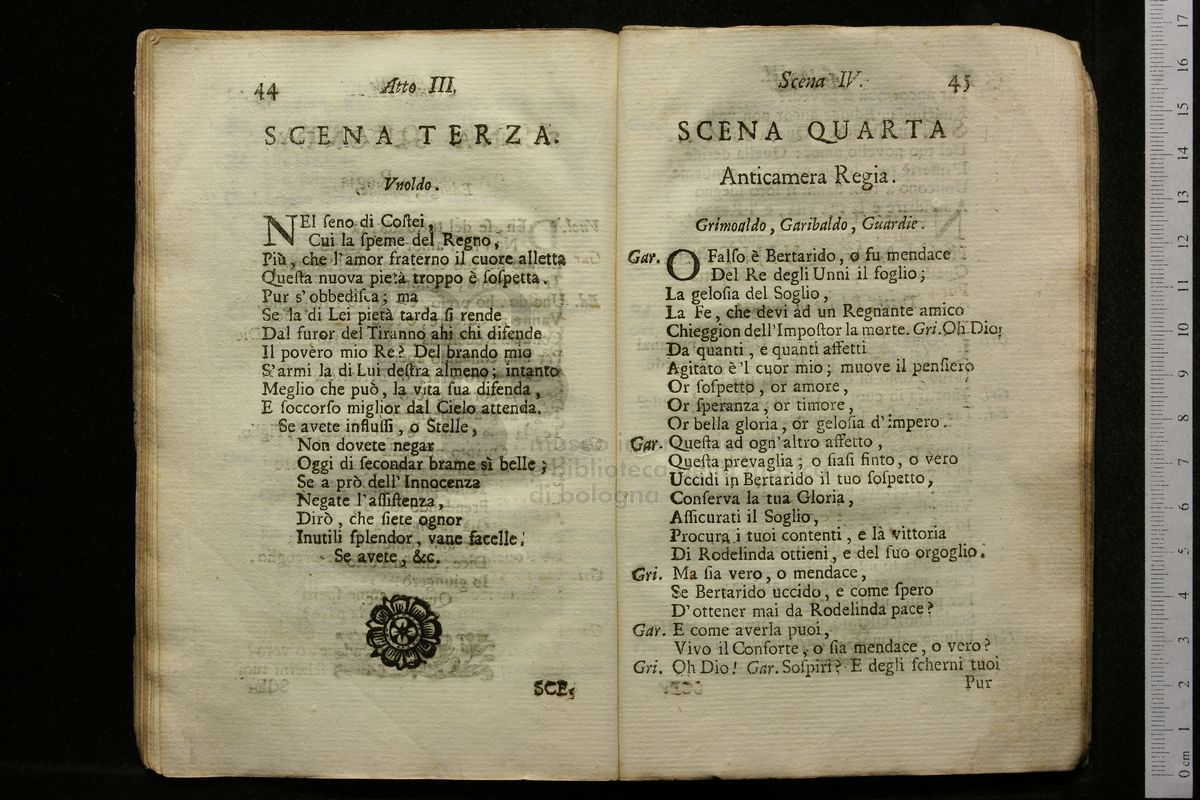 44 Atto III,
SCENA TERZA.
Vnoldo.
NEl ſeno di Coſtei,
Cui la ſpeme del Regno,
Più, che l'amor fraterno il cuore alletta
Queſta nuova pietà troppo è ſoſpetta.
Pur s'obbediſca; ma
Se la di Lei pietà tarda ſi rende
Dal furor del Tiranno ahi chi difende
Il povero mio Re? Del brando mio
S'armi la di Lui deſtra almeno; intanto
Meglio che può, la vita ſua difenda,
E ſoccorſo miglior dal Cielo attenda.
Se avete influſſi, o Stelle,
Non dovete negar
Oggi di ſecondar brame sì belle;
Se a prò dell'Innocenza
Negate l'aſſiſtenza,
Dirò, che ſiete ognor
Inutili ſplendor, vane facelle.
Se avete, &c.
SCE,
Scena IV. 45
SCENA QUARTA
Anticamera Regia.
Grimoaldo, Garibaldo, Guardie.
Gar. O Falſo è Bertarido, o fu mendace
Del Re degli Unni il foglio;
La geloſia del Soglio,
La Fe, che devi ad un Regnante amico
Chieggion dell'Impoſtor la morte. Gri. Oh Dio,
Da quanti, e quanti affetti
Agitato è'l cuor mio; muove il penſiero
Or ſoſpetto, or amore,
Or ſperanza, or timore,
Or bella gloria, or geloſia d'impero.
Gar. Queſta ad ogn'altro affetto,
Queſta prevaglia; o ſiaſi finto, o vero
Uccidi in Bertarido il tuo ſoſpetto,
Conſerva la tua Gloria,
Aſſicurati il Soglio,
Procura i tuoi contenti, e là vittoria
Di Rodelinda ottieni, e del ſuo orgoglio.
Gri. Ma ſia vero, o mendace,
Se Bertarido uccido, e come ſpero
D'ottener mai da Rodelinda pace?
Gar. E come averla puoi,
Vivo il Conforte, o ſia mendace, o vero?
Gri. Oh Dio! Gar. Soſpiri? E degli ſcherni tuoi
Pur
museo in
Biblioteca
di bologna
0 cm 1 2 3 4 5 6 7 8 9 10 11 12 13 14 15 16 17